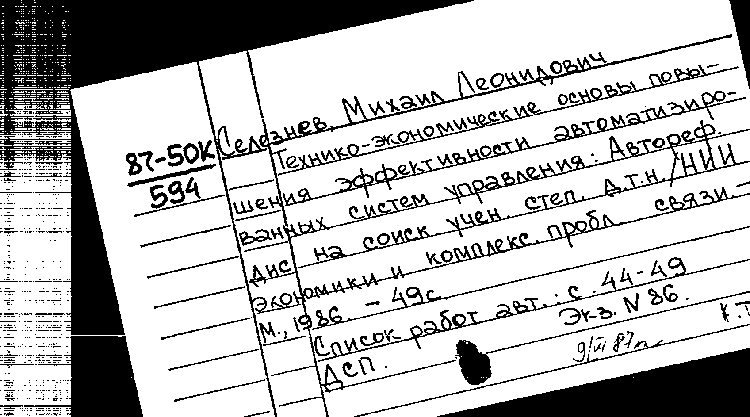 87-50К
594
Селезнев, Михаил Леонидович
Технико-экономические основы повы-
шения эффективности автоматизиро-
ванных систем управления: Автореф.
дис. на соиск. учен. степ. д.т.н. /НИИ
экономики и комплекс. пробл. связи. -
М., 1986. - 49с.
Список работ авт.: с. 44-49
ДСП. Экз. N 86.
К.Т